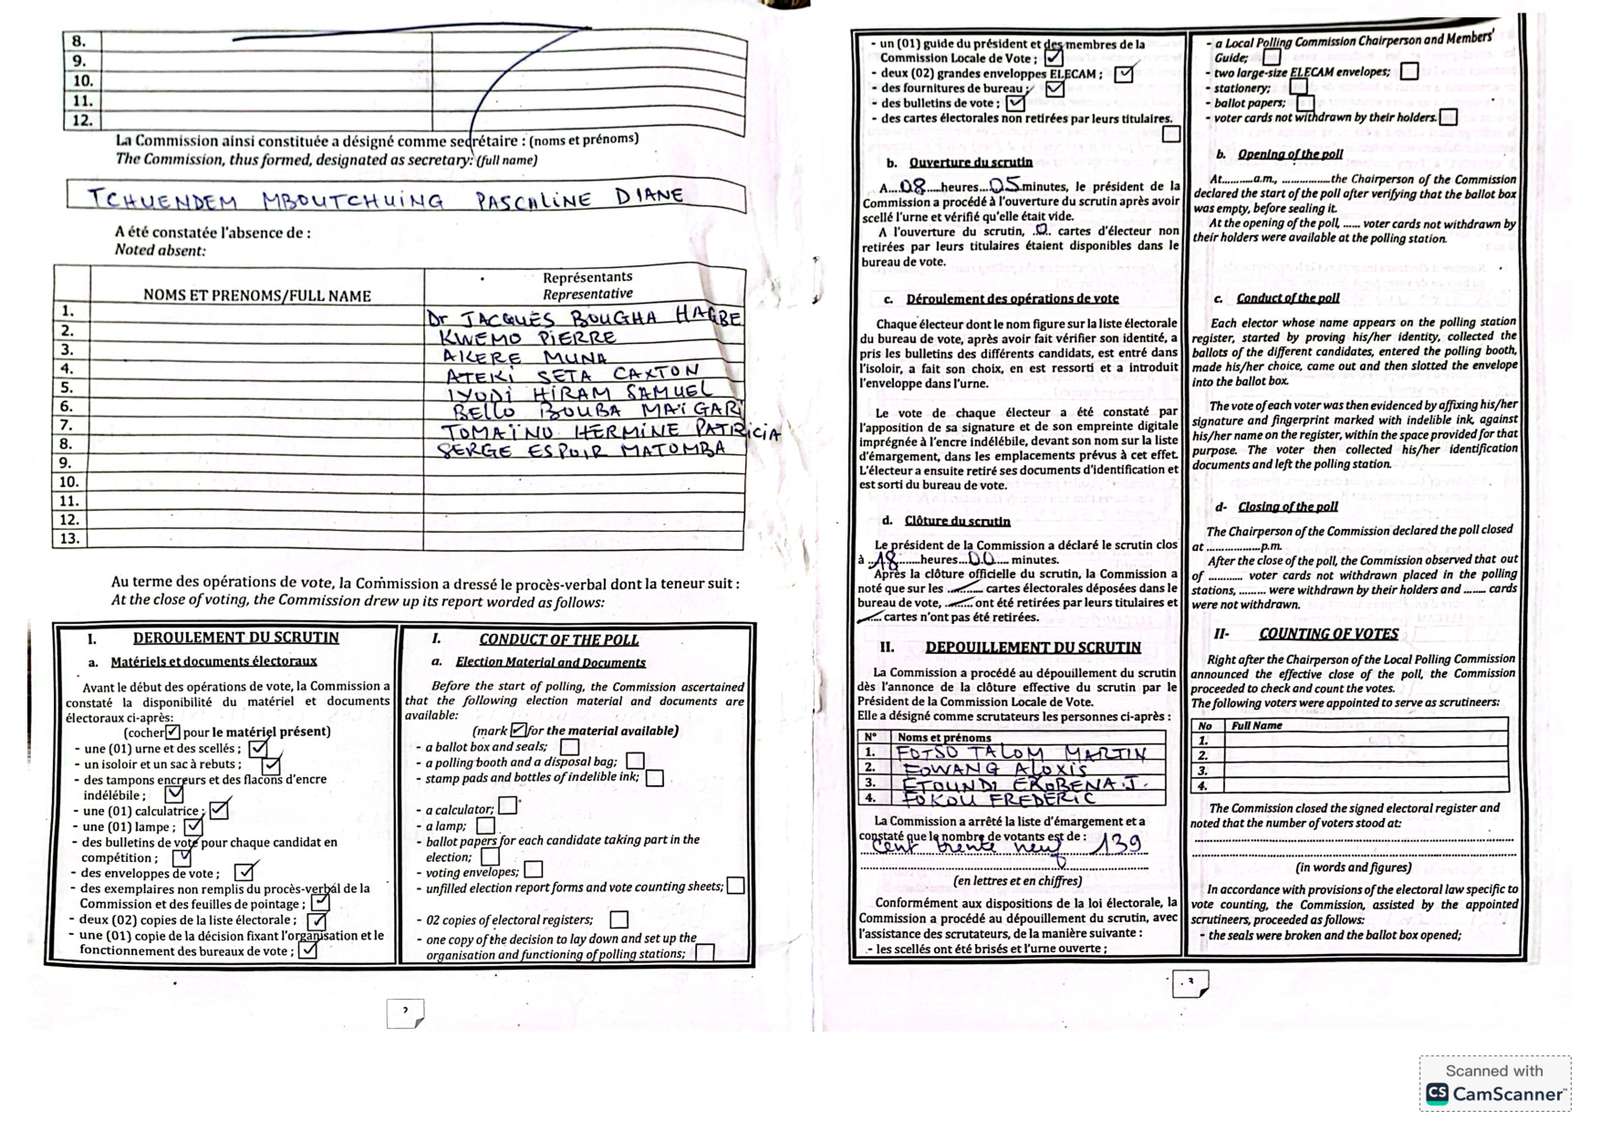 8.
9.
10.
11.
12.
La Commission ainsi constituée a désigné comme secrétaire : (noms et prénoms)
The Commission, thus formed, designated as secretary: (full name)
TCHUENDEM MBOUTCHUING PASCALINE DIANE
A été constatée l'absence de :
Noted absent:
NOMS ET PRENOMS/FULL NAME
Représentants
Representative
1. Dr JACQUES BOUGHA HAGBE
2. KWEMO PIERRE
3. AKERE MUNA
4. ATEKI SETA CAXTON
5. IYODI HIRAM SAMUEL
6. BELLO BOUBA MAÏGARI
7. TOMAÏNO HERMINE PATRICIA
8. SERGE ESPOIR MATOMBA
9.
10.
11.
12.
13.
Au terme des opérations de vote, la Commission a dressé le procès-verbal dont la teneur suit :
At the close of voting, the Commission drew up its report worded as follows:
I. DEROULEMENT DU SCRUTIN
a. Matériels et documents électoraux
Avant le début des opérations de vote, la Commission a
constaté la disponibilité du matériel et documents
électoraux ci-après:
(cocher ☑ pour le matériel présent)
- une (01) urne et des scellés ; ☑
- un isoloir et un sac à rebuts ; ☑
- des tampons encreurs et des flacons d'encre
indélébile ; ☑
- une (01) calculatrice ; ☑
- une (01) lampe ; ☑
- des bulletins de vote pour chaque candidat en
compétition ; ☑
- des enveloppes de vote ; ☑
- des exemplaires non remplis du procès-verbal de la
Commission et des feuilles de pointage ; ☑
- deux (02) copies de la liste électorale ; ☑
- une (01) copie de la décision fixant l'organisation et le
fonctionnement des bureaux de vote ; ☑
I. CONDUCT OF THE POLL
a. Election Material and Documents
Before the start of polling, the Commission ascertained
that the following election material and documents are
available:
(mark ☑ for the material available)
- a ballot box and seals; ☐
- a polling booth and a disposal bag; ☐
- stamp pads and bottles of indelible ink; ☐
- a calculator; ☐
- a lamp; ☐
- ballot papers for each candidate taking part in the
election; ☐
- voting envelopes; ☐
- unfilled election report forms and vote counting sheets; ☐
- 02 copies of electoral registers; ☐
- one copy of the decision to lay down and set up the
organisation and functioning of polling stations; ☐
2
- un (01) guide du président et des membres de la
Commission Locale de Vote ; ☑
- deux (02) grandes enveloppes ELECAM ; ☑
- des fournitures de bureau ; ☑
- des bulletins de vote ; ☑
- des cartes électorales non retirées par leurs titulaires.
☐
b. Ouverture du scrutin
A....08....heures...05minutes, le président de la
Commission a procédé à l'ouverture du scrutin après avoir
scellé l'urne et vérifié qu'elle était vide.
A l'ouverture du scrutin, .0. cartes d'électeur non
retirées par leurs titulaires étaient disponibles dans le
bureau de vote.
c. Déroulement des opérations de vote
Chaque électeur dont le nom figure sur la liste électorale
du bureau de vote, après avoir fait vérifier son identité, a
pris les bulletins des différents candidats, est entré dans
l'isoloir, a fait son choix, en est ressorti et a introduit
l'enveloppe dans l'urne.
Le vote de chaque électeur a été constaté par
l'apposition de sa signature et de son empreinte digitale
imprégnée à l'encre indélébile, devant son nom sur la liste
d'émargement, dans les emplacements prévus à cet effet.
L'électeur a ensuite retiré ses documents d'identification et
est sorti du bureau de vote.
d. Clôture du scrutin
Le président de la Commission a déclaré le scrutin clos
à ..18......heures...00... minutes.
Après la clôture officielle du scrutin, la Commission a
noté que sur les ......... cartes électorales déposées dans le
bureau de vote, ....... ont été retirées par leurs titulaires et
....... cartes n'ont pas été retirées.
II. DEPOUILLEMENT DU SCRUTIN
La Commission a procédé au dépouillement du scrutin
dès l'annonce de la clôture effective du scrutin par le
Président de la Commission Locale de Vote.
Elle a désigné comme scrutateurs les personnes ci-après :
N° Noms et prénoms
1. FOTSO TALOM MARTIN
2. EOWANG ALOXIS
3. ETOUNDI EKOBENA .J.
4. FOKOU FREDERIC
La Commission a arrêté la liste d'émargement et a
constaté que le nombre de votants est de :
Cent trente neuf 139
(en lettres et en chiffres)
Conformément aux dispositions de la loi électorale, la
Commission a procédé au dépouillement du scrutin, avec
l'assistance des scrutateurs, de la manière suivante :
- les scellés ont été brisés et l'urne ouverte ;
- a Local Polling Commission Chairperson and Members'
Guide; ☐
- two large-size ELECAM envelopes; ☐
- stationery; ☐
- ballot papers; ☐
- voter cards not withdrawn by their holders. ☐
b. Opening of the poll
At..........a.m., ...............the Chairperson of the Commission
declared the start of the poll after verifying that the ballot box
was empty, before sealing it.
At the opening of the poll, ...... voter cards not withdrawn by
their holders were available at the polling station.
c. Conduct of the poll
Each elector whose name appears on the polling station
register, started by proving his/her identity, collected the
ballots of the different candidates, entered the polling booth,
made his/her choice, came out and then slotted the envelope
into the ballot box.
The vote of each voter was then evidenced by affixing his/her
signature and fingerprint marked with indelible ink, against
his/her name on the register, within the space provided for that
purpose. The voter then collected his/her identification
documents and left the polling station.
d- Closing of the poll
The Chairperson of the Commission declared the poll closed
at ..................p.m.
After the close of the poll, the Commission observed that out
of ........... voter cards not withdrawn placed in the polling
stations, ......... were withdrawn by their holders and ....... cards
were not withdrawn.
II- COUNTING OF VOTES
Right after the Chairperson of the Local Polling Commission
announced the effective close of the poll, the Commission
proceeded to check and count the votes.
The following voters were appointed to serve as scrutineers:
No Full Name
1.
2.
3.
4.
The Commission closed the signed electoral register and
noted that the number of voters stood at:
(in words and figures)
In accordance with provisions of the electoral law specific to
vote counting, the Commission, assisted by the appointed
scrutineers, proceeded as follows:
- the seals were broken and the ballot box opened;
3
Scanned with
CS CamScanner